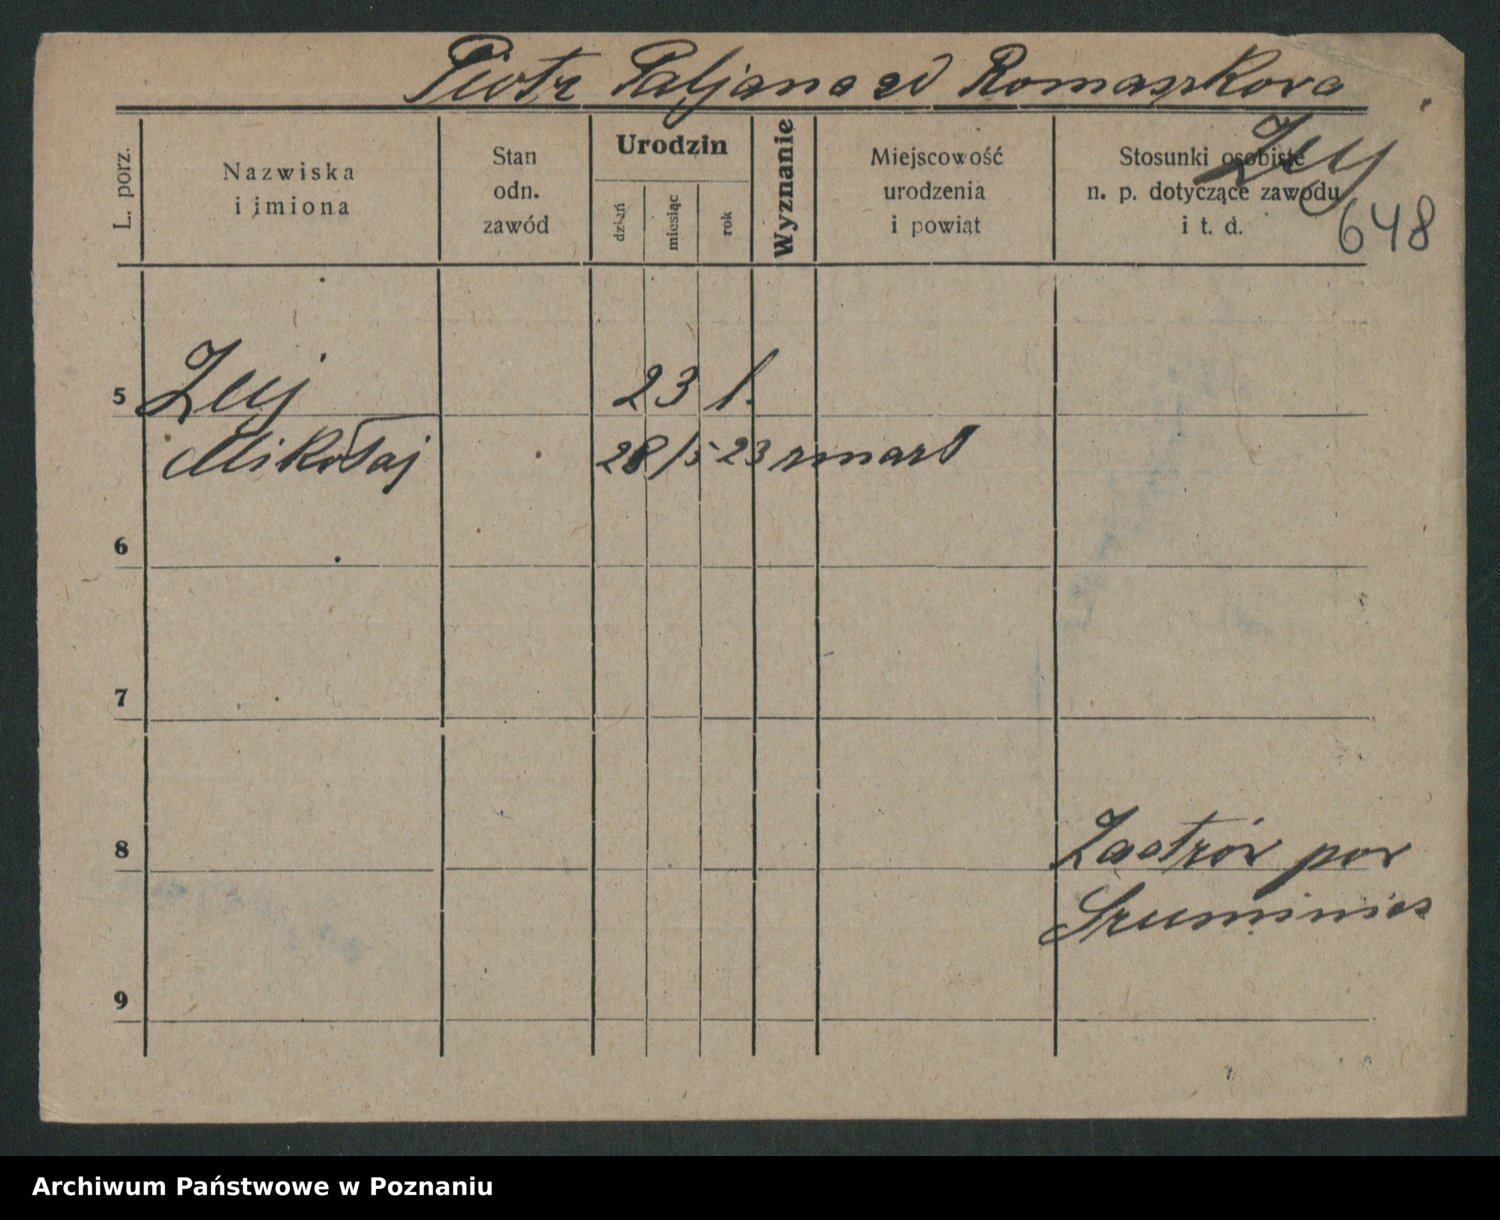 Piotr Romaszkova
L. porz.
Nazwiska
i imiona
Stan
odn.
zawód
Urodzin
dzień
miesiąc
rok
Wyznanie
Miejscowość
urodzenia
i powiat
Stosunki osobiste
n. p. dotyczące zawodu
i t. d.
648
5
23 l.
Mikołaj 28/5 23 zmarł
6
7
8
por
9
Archiwum Państwowe w Poznaniu